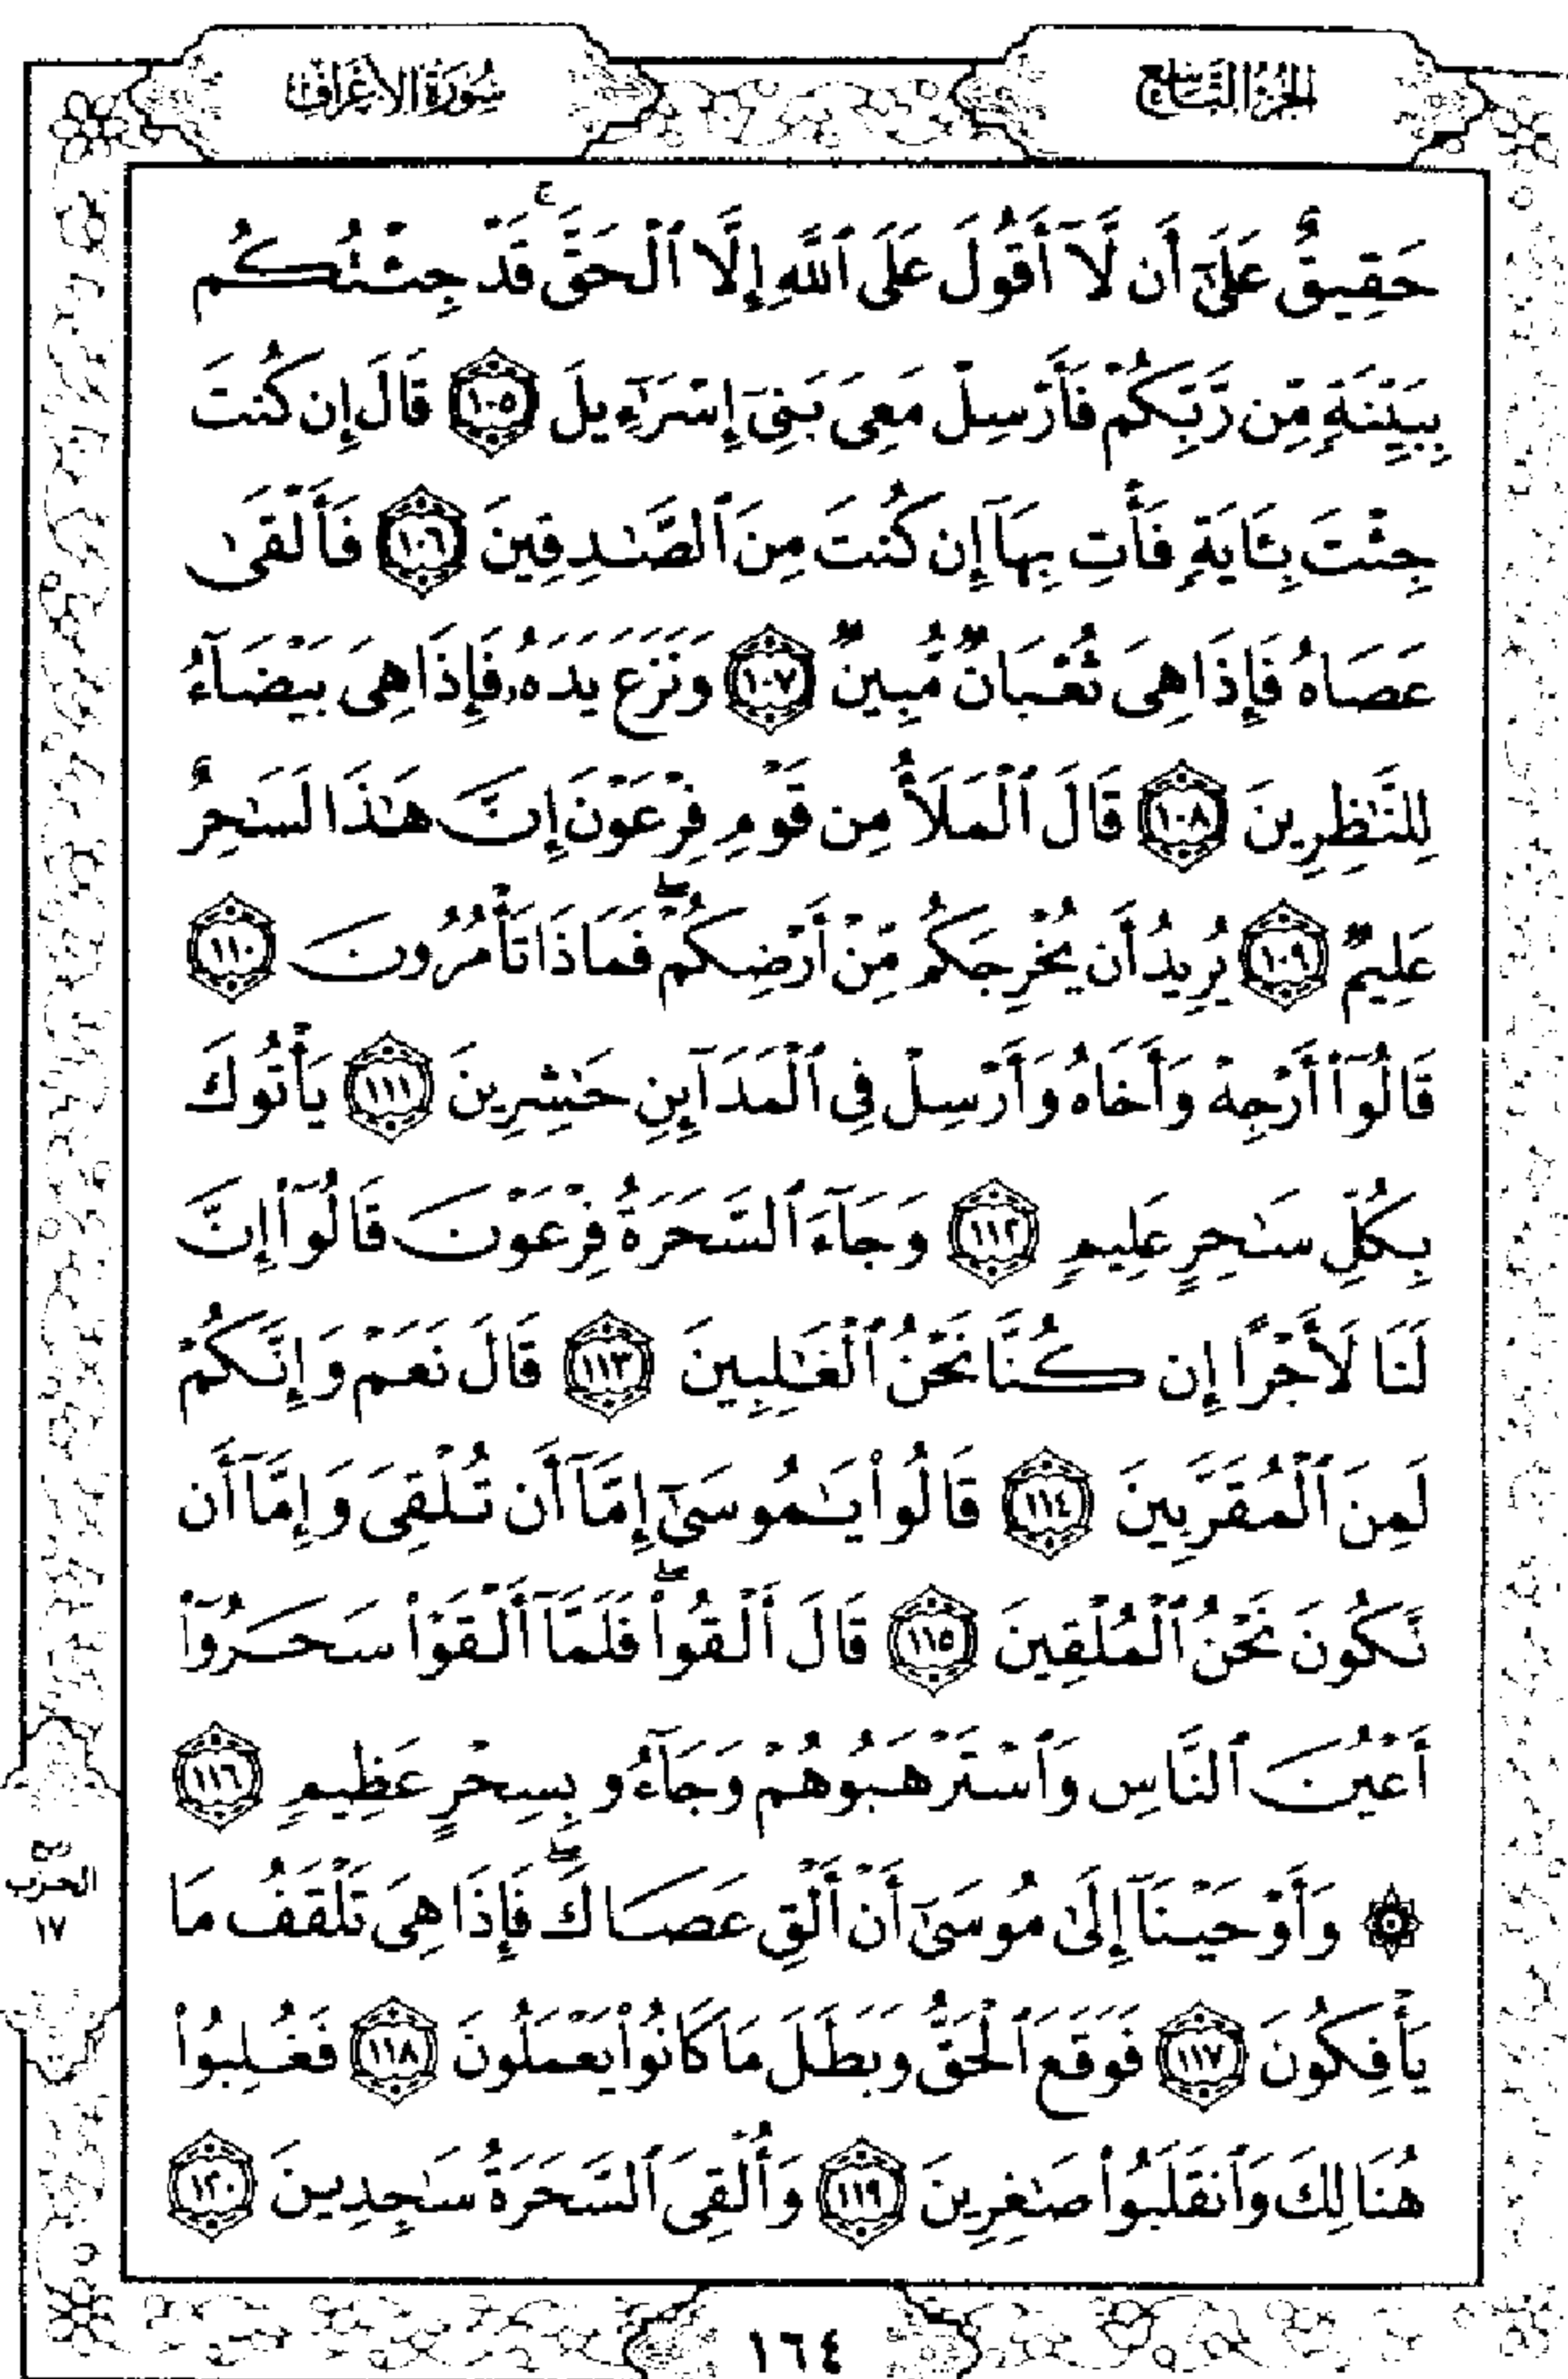 الجزء التاسع
سورة الأعراف
حَقِيقٌ عَلَىٰٓ أَن لَّآ أَقُولَ عَلَى ٱللَّهِ إِلَّا ٱلْحَقَّۚ قَدْ جِئْتُكُم
بِبَيِّنَةٍ مِّن رَّبِّكُمْ فَأَرْسِلْ مَعِىَ بَنِىٓ إِسْرَٰٓءِيلَ ١٠٥ قَالَ إِن كُنتَ
جِئْتَ بِـَٔايَةٍ فَأْتِ بِهَآ إِن كُنتَ مِنَ ٱلصَّـٰدِقِينَ ١٠٦ فَأَلْقَىٰ
عَصَاهُ فَإِذَا هِىَ ثُعْبَانٌ مُّبِينٌ ١٠٧ وَنَزَعَ يَدَهُۥ فَإِذَا هِىَ بَيْضَآءُ
لِلنَّـٰظِرِينَ ١٠٨ قَالَ ٱلْمَلَأُ مِن قَوْمِ فِرْعَوْنَ إِنَّ هَـٰذَا لَسَـٰحِرٌ
عَلِيمٌ ١٠٩ يُرِيدُ أَن يُخْرِجَكُم مِّنْ أَرْضِكُمْۖ فَمَاذَا تَأْمُرُونَ ١١٠
قَالُوٓا۟ أَرْجِهْ وَأَخَاهُ وَأَرْسِلْ فِى ٱلْمَدَآئِنِ حَـٰشِرِينَ ١١١ يَأْتُوكَ
بِكُلِّ سَـٰحِرٍ عَلِيمٍ ١١٢ وَجَآءَ ٱلسَّحَرَةُ فِرْعَوْنَ قَالُوٓا۟ إِنَّ
لَنَا لَأَجْرًا إِن كُنَّا نَحْنُ ٱلْغَـٰلِبِينَ ١١٣ قَالَ نَعَمْ وَإِنَّكُمْ
لَمِنَ ٱلْمُقَرَّبِينَ ١١٤ قَالُوا۟ يَـٰمُوسَىٰٓ إِمَّآ أَن تُلْقِىَ وَإِمَّآ أَن
نَّكُونَ نَحْنُ ٱلْمُلْقِينَ ١١٥ قَالَ أَلْقُوا۟ۖ فَلَمَّآ أَلْقَوْا۟ سَحَرُوٓا۟
أَعْيُنَ ٱلنَّاسِ وَٱسْتَرْهَبُوهُمْ وَجَآءُو بِسِحْرٍ عَظِيمٍ ١١٦
۞ وَأَوْحَيْنَآ إِلَىٰ مُوسَىٰٓ أَنْ أَلْقِ عَصَاكَۖ فَإِذَا هِىَ تَلْقَفُ مَا
يَأْفِكُونَ ١١٧ فَوَقَعَ ٱلْحَقُّ وَبَطَلَ مَا كَانُوا۟ يَعْمَلُونَ ١١٨ فَغُلِبُوا۟
هُنَالِكَ وَٱنقَلَبُوا۟ صَـٰغِرِينَ ١١٩ وَأُلْقِىَ ٱلسَّحَرَةُ سَـٰجِدِينَ ١٢٠
الحزب
١٧
١٦٤